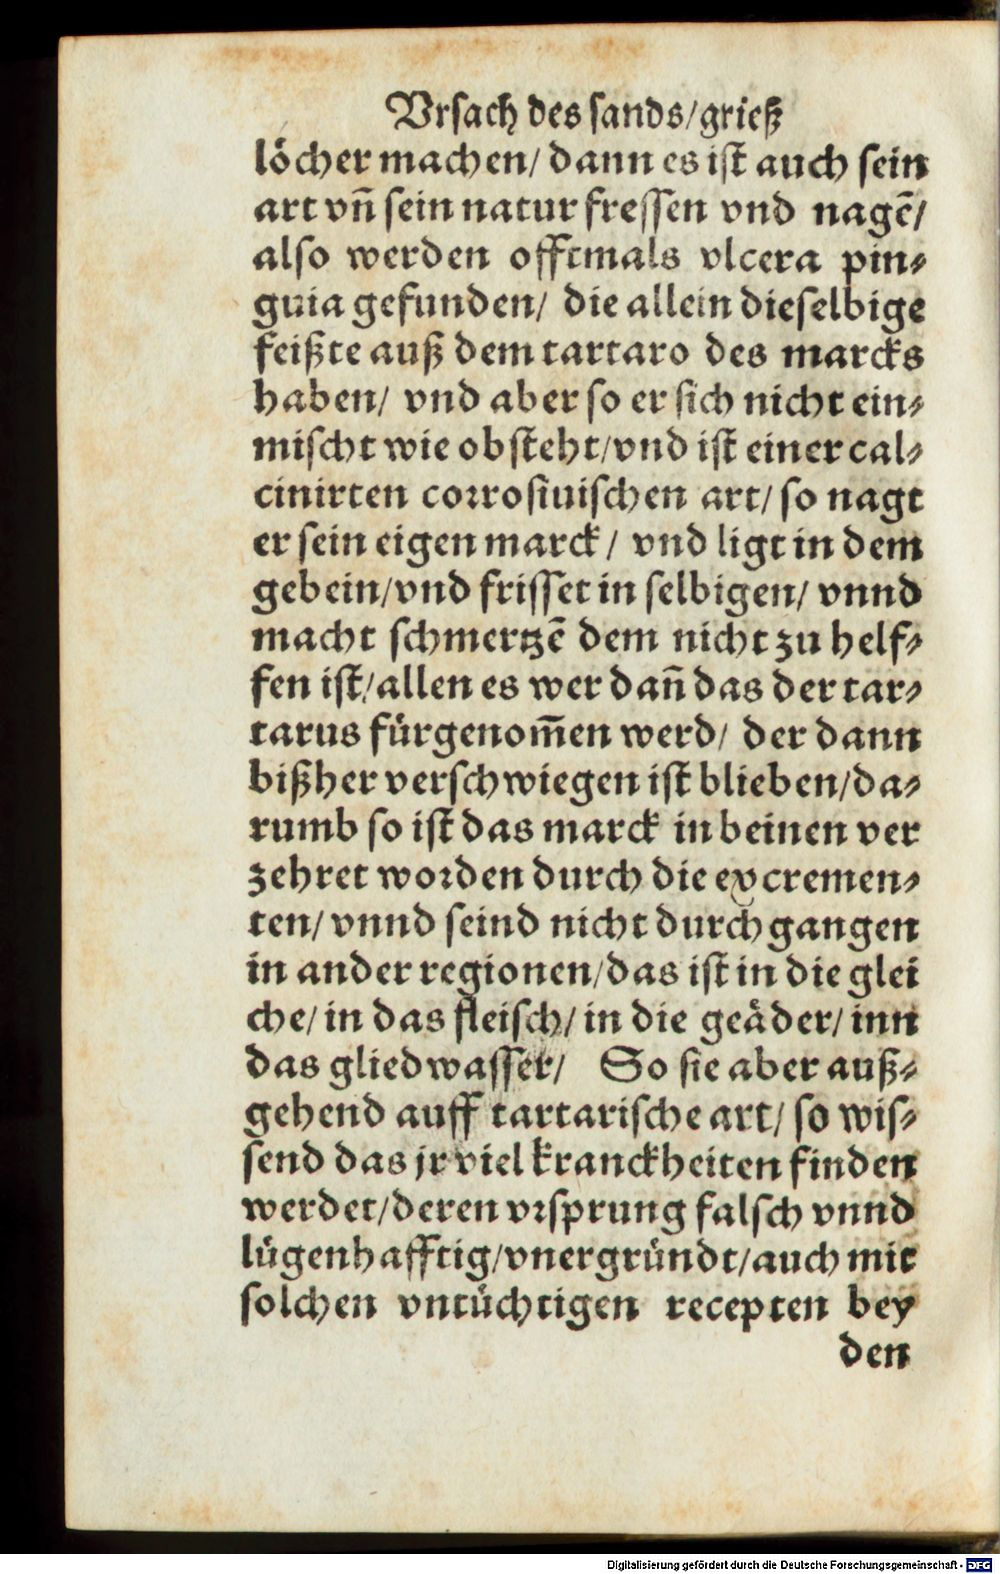 Vrsach des sands/grieß
löcher machen/ dann es ist auch sein
art vn̄ sein natur fressen vnd nagē/
also werden offtmals vlcera pin⸗
guia gefunden/ die allein dieselbige
feißte auß dem tartaro des marcks
haben/ vnd aber so er sich nicht ein⸗
mischt wie obsteht/vnd ist einer cal⸗
cinirten corrosiuischen art/ so nagt
er sein eigen marck/ vnd ligt in dem
gebein/vnd frisset in selbigen/ vnnd
macht schmertzē dem nicht zu helf⸗
fen ist/allen es wer dan̄ das der tar⸗
tarus fürgenom̄en werd/ der dann
bißher verschwiegen ist blieben/da⸗
rumb so ist das marck in beinen ver
zehret worden durch die excremen⸗
ten/ vnnd seind nicht durch gangen
in ander regionen/das ist in die glei
che/ in das fleisch/ in die geäder/ inn
das gliedwasser/ So sie aber auß⸗
gehend auff tartarische art/ so wis⸗
send das jr viel kranckheiten finden
werdet/deren vrsprung falsch vnnd
lügenhafftig/vnergründt/auch mit
solchen vntüchtigen recepten bey
den
Digitalisierung gefördert durch die Deutsche Forschungsgemeinschaft - DFG